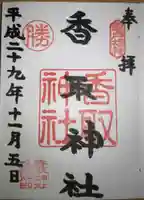 奉拝
香取神社
香取神社
勝
平成二十九年十一月五日